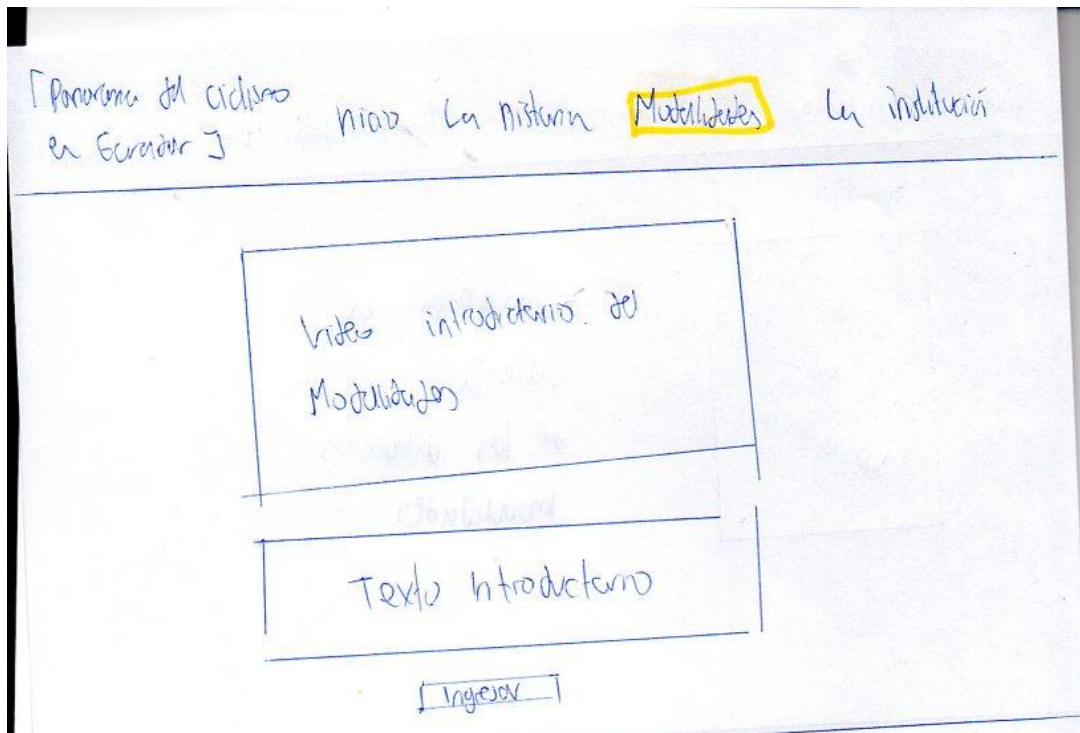 [Panorama del ciclismo
en Ecuador]
Inicio La Historia Modalidades La institución
Video introductorio del
Modalidades
Texto Introductorio
[Ingresar]